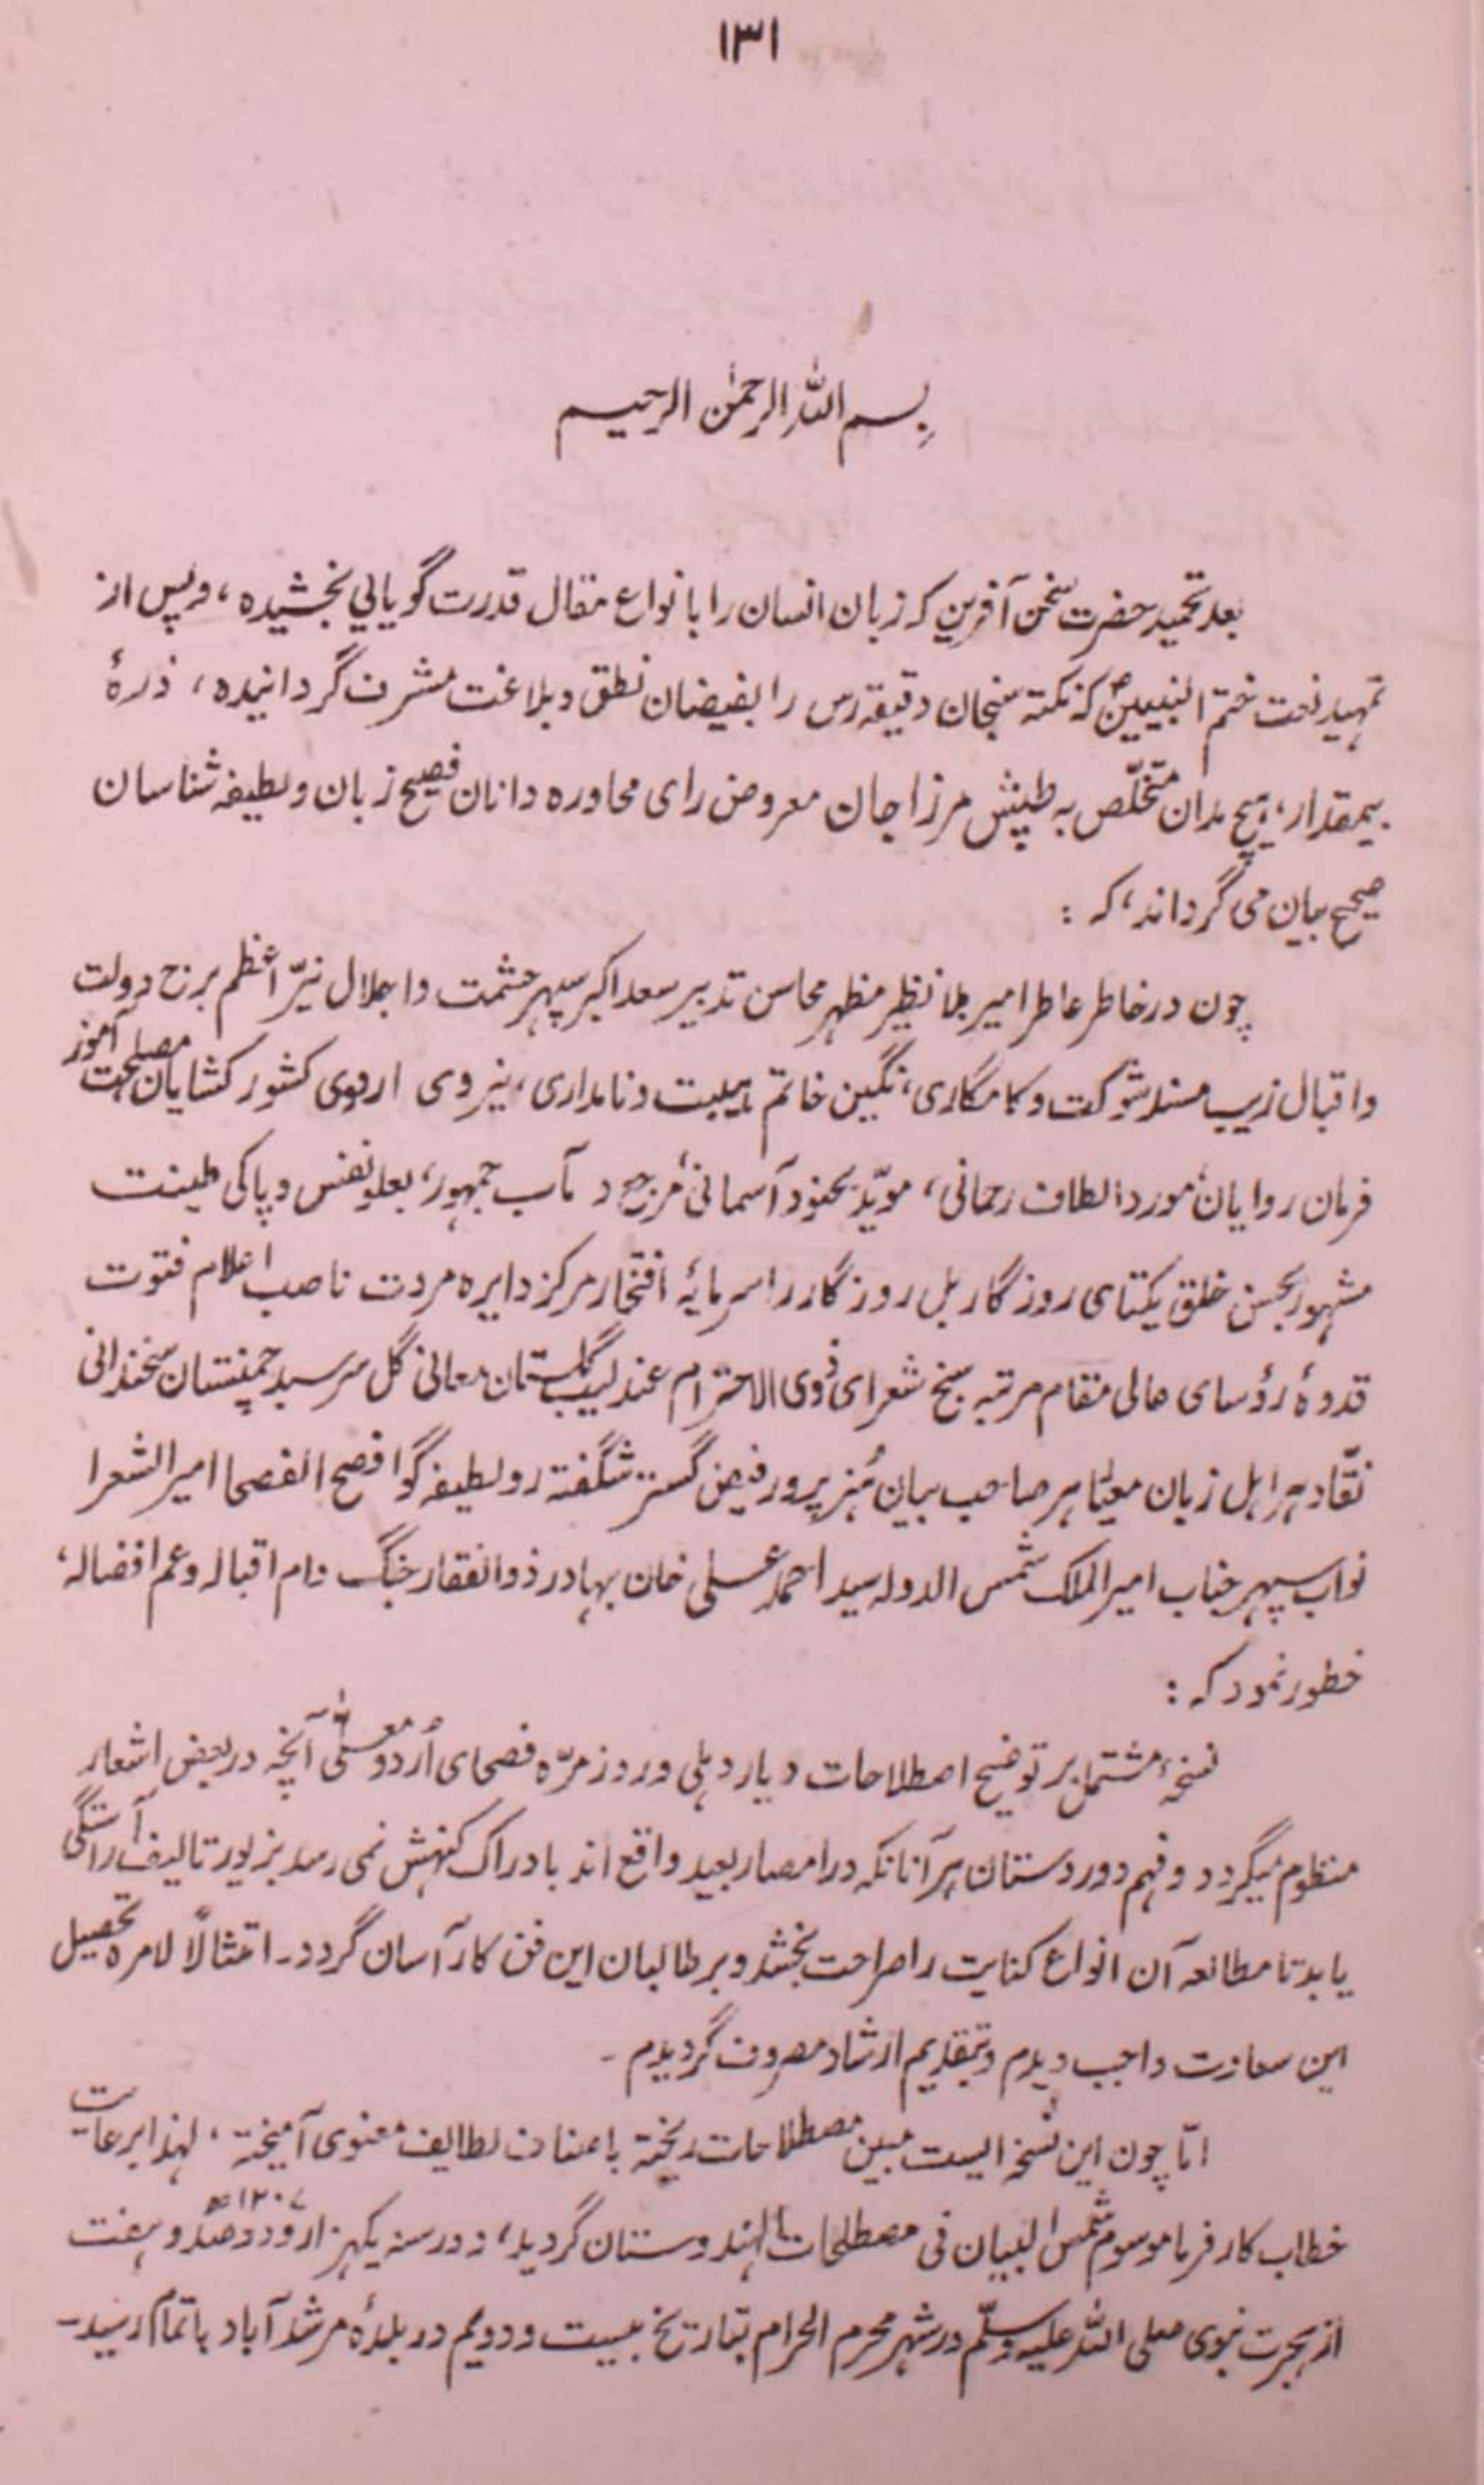 ۱۳۱
بسم اللہ الرحمٰن الرحیم
بعد تحمید حضرت سخن آفرین کہ زبان انسان را با نواع مقال قدرت گویایی بخشیدہ، و پس از
تمہید نعت ختم النبیینؐ کہ نکتہ سنجان دقیقہ رس را بفیضان نطق و بلاغت مشرف گردانیدہ، ذرۂ
بیمقدار، ہیچ مدان متخلّص بہ طپش مرزا جان معروض رای محاورہ دانان فصیح زبان و لطیفہ شناسان
صحیح بیان می گرداند، کہ :
چون در خاطر عاطر امیر بلا نظیر مظہر محاسن تدبیر سعد اکبر سپہر حشمت و اجلال نیّر اعظم برج دولت
و اقبال زیب مسند شوکت و کامگاری، نگین خاتم ہیبت و نامداری، نیروی اردوی کشور کشایان مصلحت آموز
فرمان روایان، مورد الطاف رحمانی، مویّد بجنود آسمانی، مرجع و مآب جمہور، بعلو نفس و پاکی طینت
مشہور بحسن خلق یکتای روزگار بل روزگار را سرمایۂ افتخار مرکز دایرہ مروت ناصب اعلام فتوت
قدوۂ رؤسای عالی مقام مرتبہ سنج شعرای ذوی الاحترام عندلیب گلستان معانی گل سرسبد چمنستان سخندانی
نقّاد ہر اہل زبان معیّا ہر صاحب بیان ہُنر پرور فیض گستر شگفتہ رو لطیفہ گو افصح الفصحا امیر الشعرا
نواب سپہر جناب امیر الملک شمس الدولہ سید احمد علی خان بہادر ذوالفقار جنگ دام اقبالہ و عم افضالہ،
خطور نمود کہ :
نسخۂ مشتمل بر توضیح اصطلاحات دیار دہلی و روز مرّہ فصحای اُردو معلّٰی آنچہ در بعض اشعار
منظوم میگردد و فہم دور دستان ہر آنانکہ در امصار بعید واقع اند بادراک کنہش نمی رسد بزیور تالیف آراستگی
یابد تا مطالعہ آن انواع کنایت را صراحت بخشد و بر طالبان این فن کار آسان گردد۔ امتثالًا لامرہ تحصیل
این سعادت واجب دیدم و بتقدیم ارشاد مصروف گردیدم ۔
امّا چون این نسخہ ایست مبین مصطلاحات ریختہ با صناف لطایف معنوی آمیختہ، لہذا برعایت
خطاب کار فرما موسوم شمس البیان فی مصطلحات الہندوستان گردید، و در سنہ یکہزار و دو صد و ہفت ۱۲۰۷ھ
از ہجرت نبوی صلی اللہ علیہ وسلّم در شہر محرم الحرام بتاریخ بیست و دویم در بلدۂ مرشد آباد باتمام رسید۔